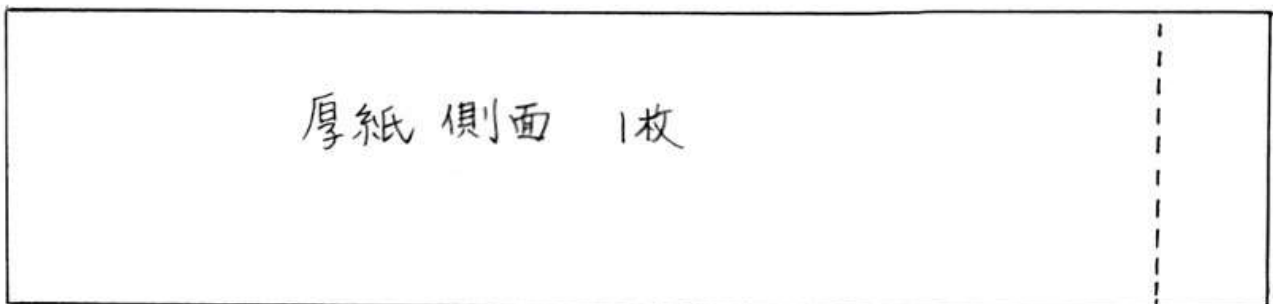 厚紙 側面 1枚